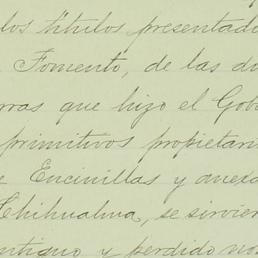 los títulos presentad
Fomento, de las d
rras que hizo el Gob
primitivos propietar
Encinillas y anexa
Chihuahua, se sirvier
antiguo y perdido nos